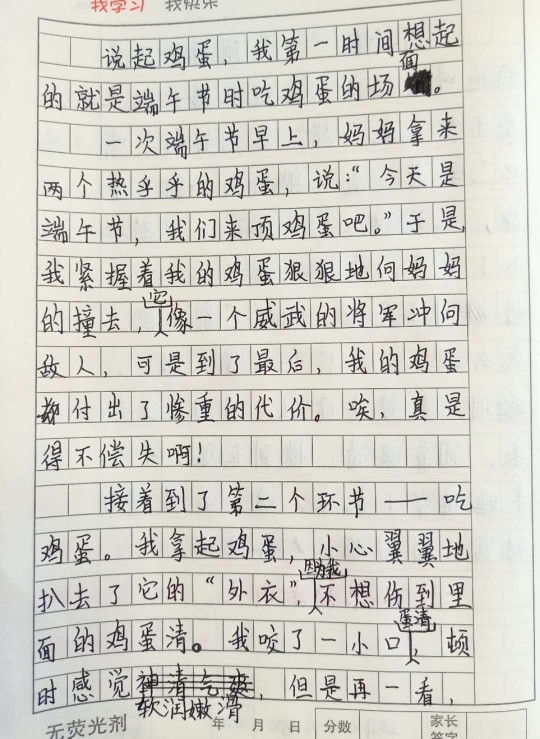 我学习 我快乐
说起鸡蛋，我第一时间想起
的就是端午节时吃鸡蛋的场面。
一次端午节早上，妈妈拿来
两个热乎乎的鸡蛋，说：“今天是
端午节，我们来顶鸡蛋吧。”于是，
我紧握着我的鸡蛋狠狠地向妈妈
的撞去，它像一个威武的将军冲向
敌人，可是到了最后，我的鸡蛋
却付出了惨重的代价。唉，真是
得不偿失啊！
接着到了第二个环节——吃
鸡蛋。我拿起鸡蛋，小心翼翼地
扒去了它的“外衣”，因为我不想伤到里
面的鸡蛋清。我咬了一小口蛋清，顿
时感觉软润嫩滑，但是再一看，
无荧光剂 年 月 日 分数 家长签字